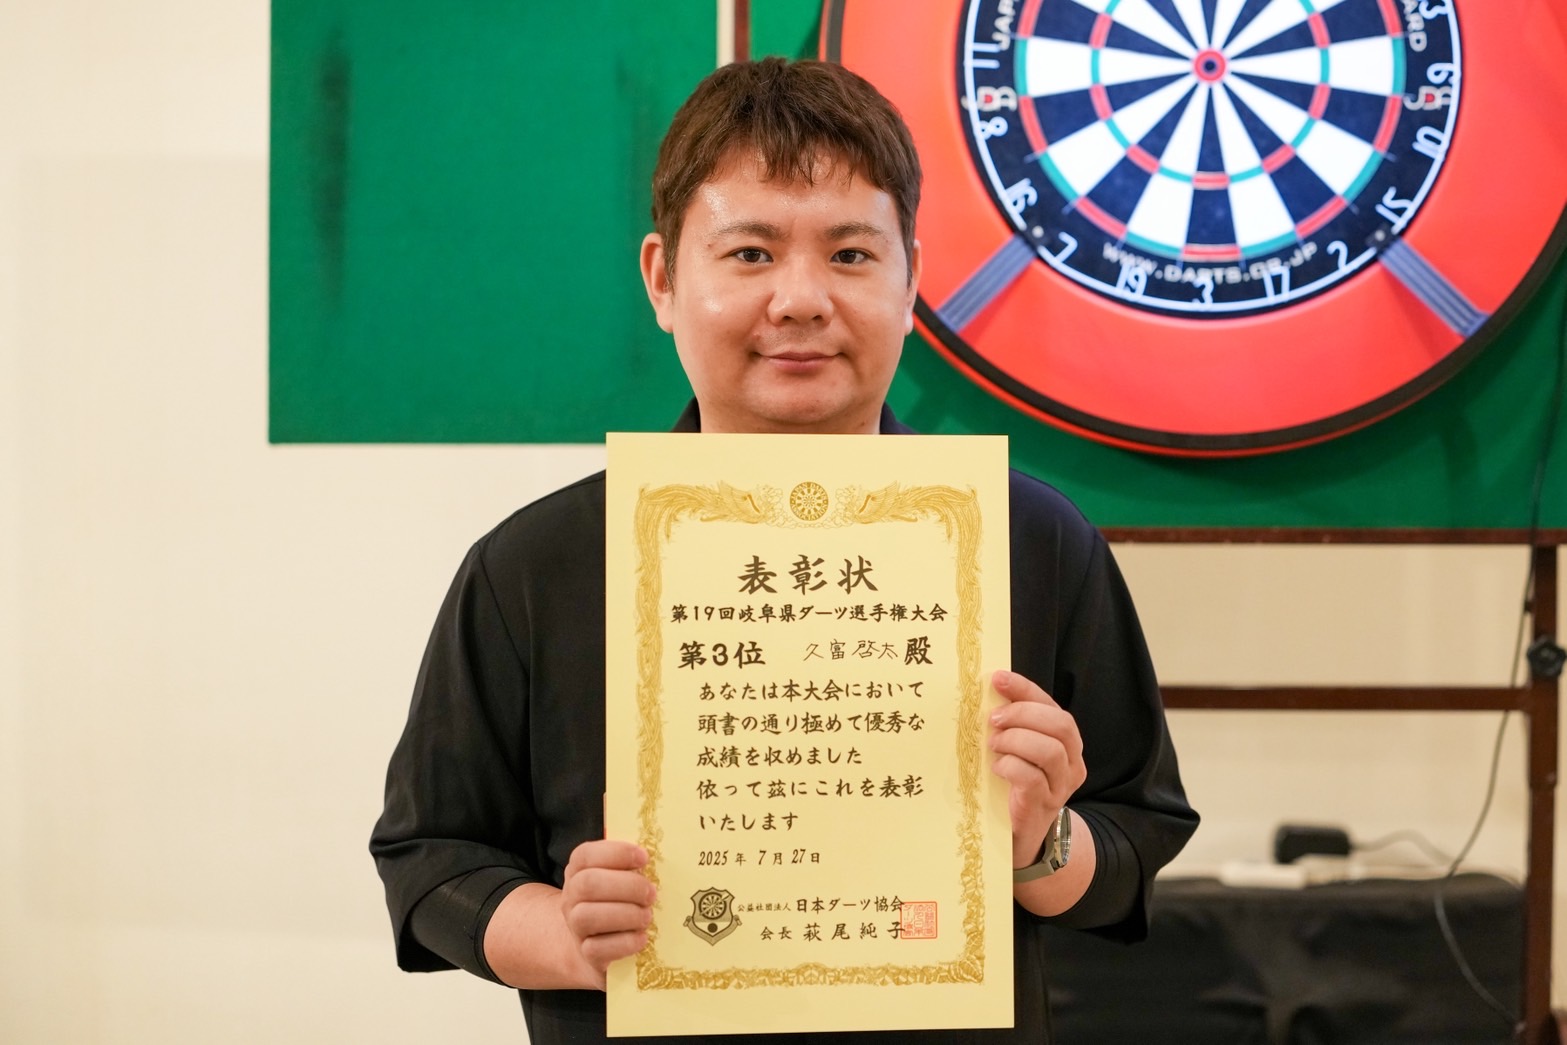 表彰状
第19回岐阜県ダーツ選手権大会
第3位 久富啓太殿
あなたは本大会において
頭書の通り極めて優秀な
成績を収めました
依って茲にこれを表彰
いたします
2025年7月27日
公益社団法人 日本ダーツ協会
会長 萩尾純子
11
8
16
7
19
3
17
2
15
10
WWW.DARTS.CO.JP